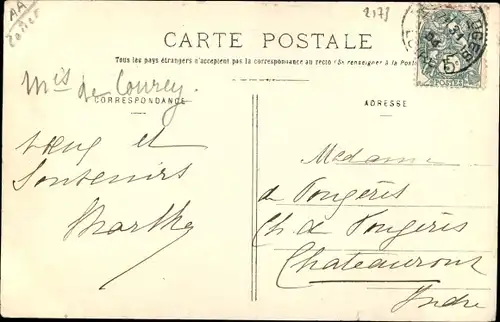 AA
2173
CARTE POSTALE
Tous les pays étrangers n'acceptent pas la correspondance au recto (Se renseigner à la Poste)
Mis de Courcy
CORRESPONDANCE
ADRESSE
Vœux et
Souvenirs
Marthe
Madame
de Fougères
Ch. de Fougères
Chateauroux
Indre